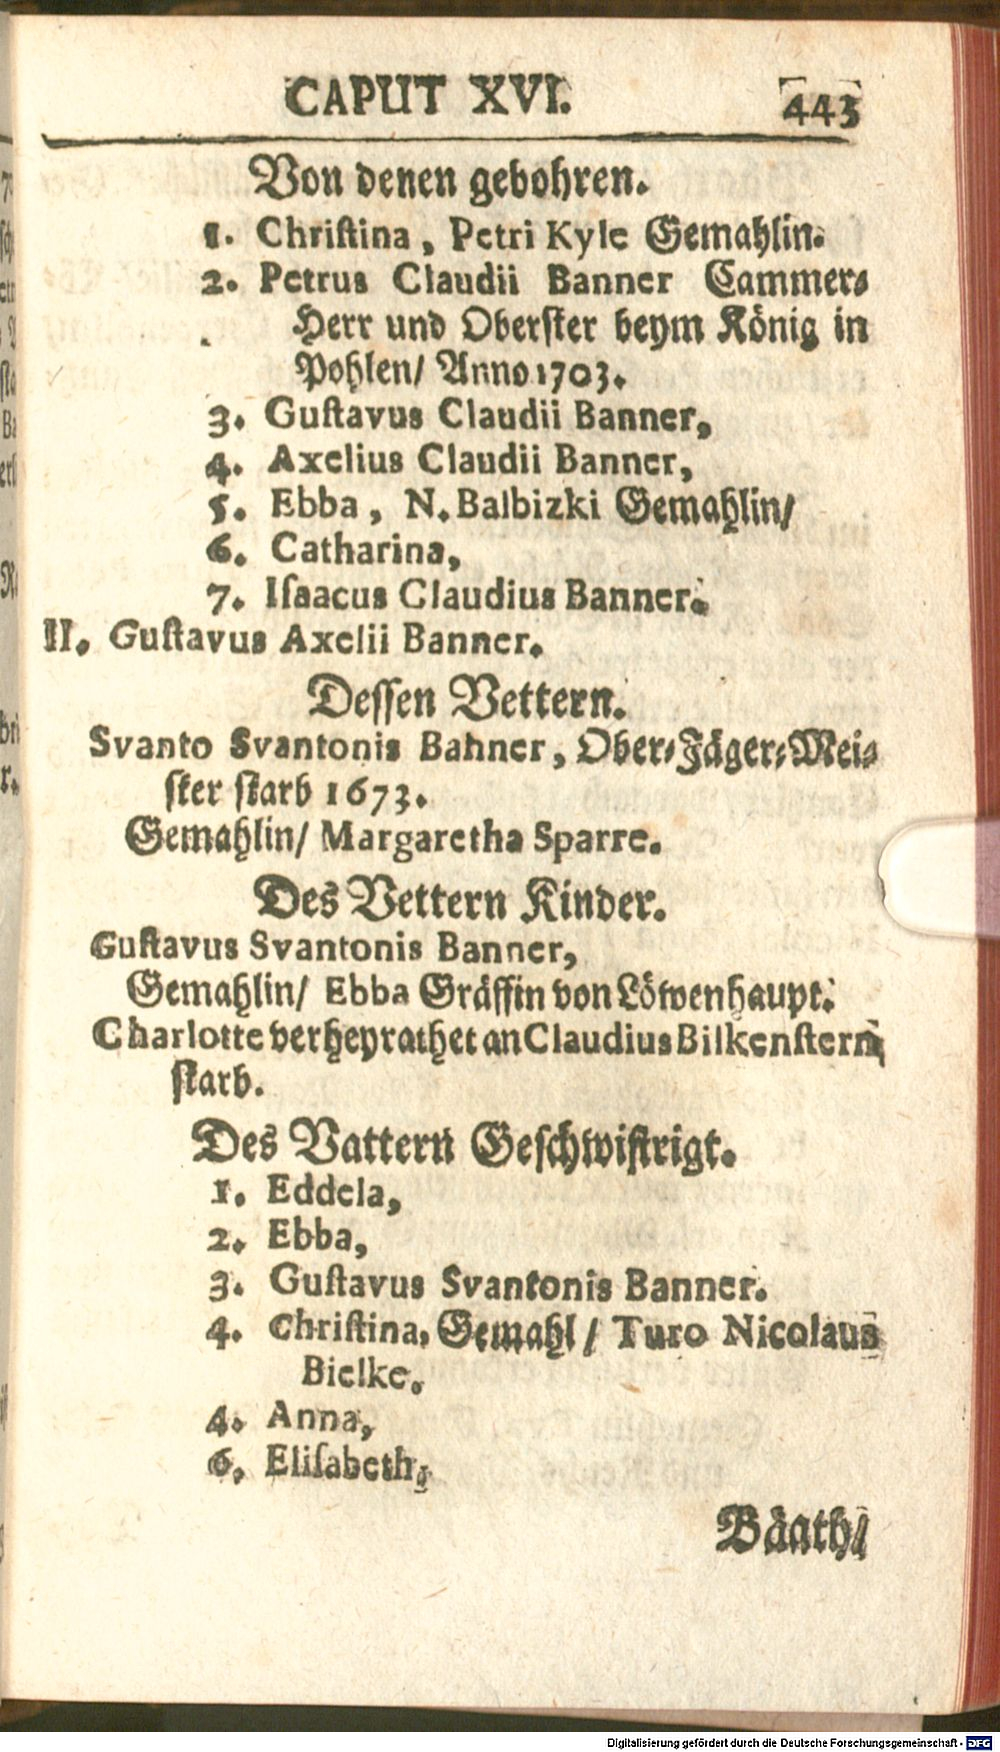 CAPUT XVI. 443
Von denen gebohren.
1. Chriſtina, Petri Kyle Gemahlin.
2. Petrus Claudii Banner Cammer⸗
Herr und Oberſter beym König in
Pohlen/ Anno 1703.
3. Guſtavus Claudii Banner,
4. Axelius Claudii Banner,
5. Ebba, N. Balbizki Gemahlin/
6. Catharina,
7. Iſaacus Claudius Banner.
II. Guſtavus Axelii Banner.
Deſſen Vettern.
Svanto Svantonis Banner, Ober⸗Jäger⸗Mei⸗
ſter ſtarb 1673.
Gemahlin/ Margaretha Sparre.
Des Vettern Kinder.
Guſtavus Svantonis Banner,
Gemahlin/ Ebba Gräffin von Löwenhaupt.
Charlotte verheyrathet an Claudius Bilkenſtern,
ſtarb.
Des Vattern Geſchwiſtrigt.
1. Eddela,
2. Ebba,
3. Guſtavus Svantonis Banner.
4. Chriſtina, Gemahl / Turo Nicolaus
Bielke.
4. Anna,
6. Eliſabeth.
Bäath/
Digitalisierung gefördert durch die Deutsche Forschungsgemeinschaft - DFG